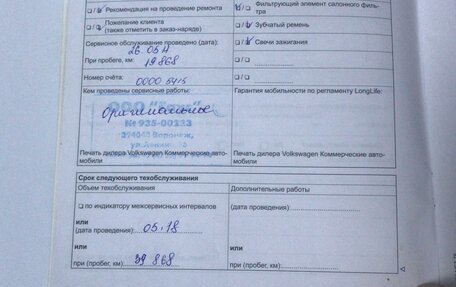 ❏/❏ Рекомендация на проведение ремонта
❏/❏ Фильтрующий элемент салонного фильтра
❏/❏ Пожелание клиента
(также отметить в заказ-наряде)
❏/❏ Зубчатый ремень
❏/❏ Свечи зажигания
Сервисное обслуживание проведено (дата):
26.05.17
При пробеге, км: 19868
❏/❏
Номер счёта: 0000 5415
❏/❏
Кем проведены сервисные работы:
Гарантия мобильности по регламенту LongLife:
ООО
Оригинальное
№ 935-00233
394043 Воронеж,
ул.Ленина
Печать дилера Volkswagen Коммерческие автомобили
Печать дилера Volkswagen Коммерческие автомобили
Срок следующего техобслуживания
Объем техобслуживания
Дополнительные работы
❏ по индикатору межсервисных интервалов
или
(дата проведения): 05.18
(дата проведения):
или
или
при (пробег, км): 39 868
при (пробег, км):